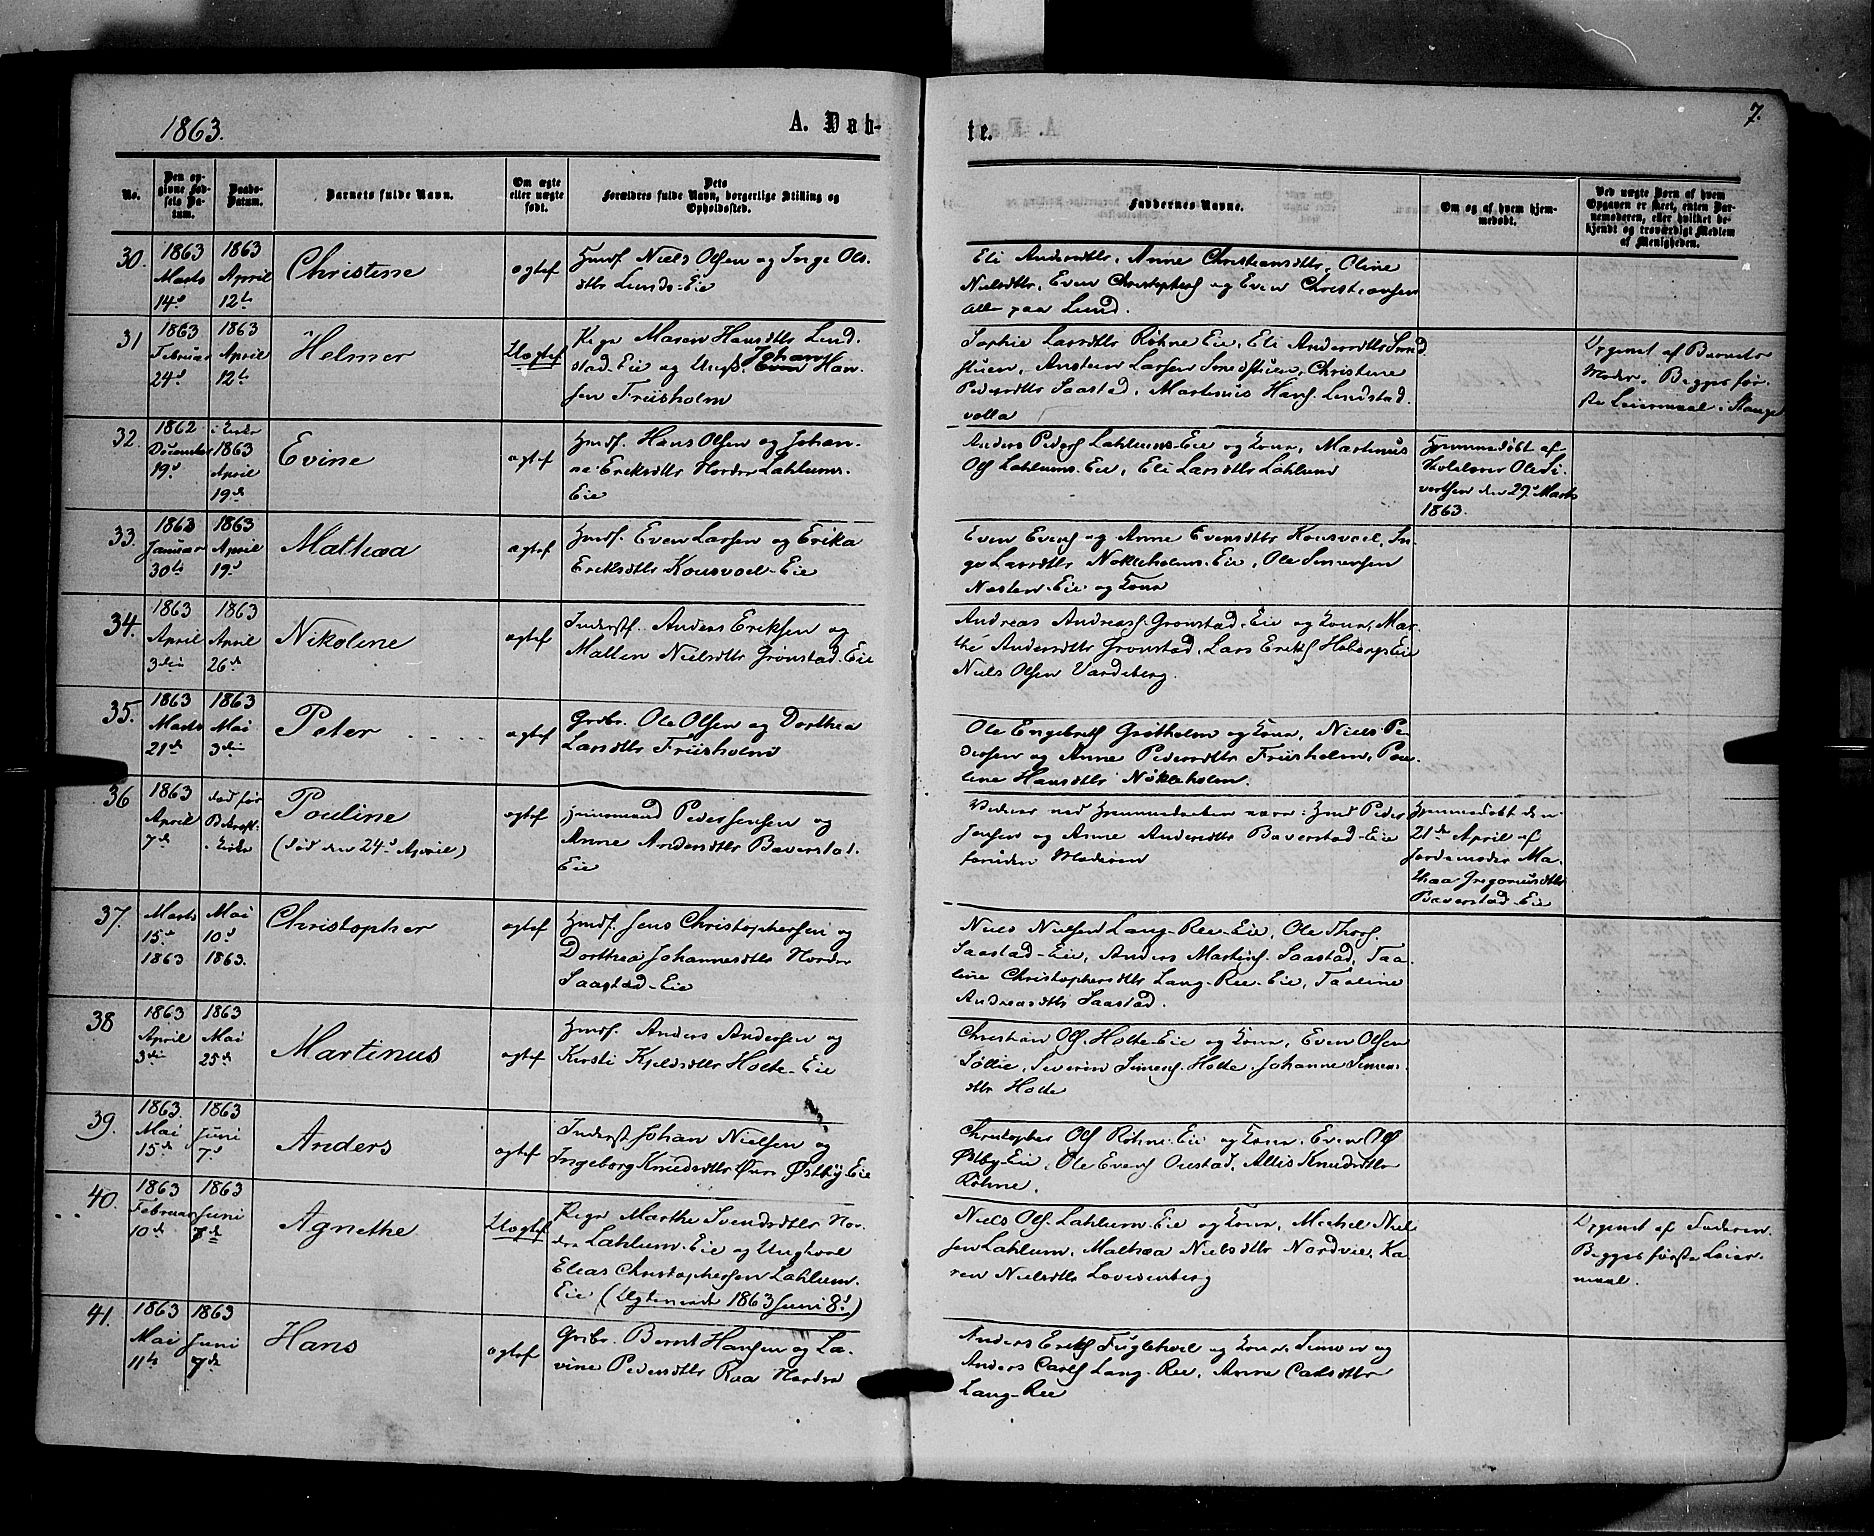 1863.
A. Døb-
te.
7.
No.
Den op-
givne Fød-
sels Da-
tum.
Daabs-
Datum.
Barnets fulde Navn.
Om ægte
eller uægte
født.
Dets
Forældres fulde Navn, borgerlige Stilling og
Opholdssted.
Faddernes Navne.
Om og af hvem hjem-
medøbt.
Ved uægte Børn af hvem
Opgaven er skeet, enten Bar-
nemoderen, eller hvilket be-
kjendt og troværdigt Medlem
af Menigheden.
30.
1863
Marts
14d
1863
April
12te
Christine
ægtef
Hmdf. Niels Olsen og Inge Ols-
dttr Lunds-Eie
Eli Andersdttr, Anne Christiansdttr, Oline
Nielsdttr, Even Christophers og Even Christiansen
alle paa Lund.
31
1863
Februar
24d
1863
April
12te
Helmer
Uægtef
Pige Maren Hansdttr Lund-
stad-Eie og Ungk. Johan
Even Han-
sen Friisholm
Sophie Larsdttr Røhne Eie, Eli Andersdttr Smed
stuen, Anstein Larsen Smedstuen, Christine
Pedersdttr Saastad, Martinus Hans. Lundstad
volla
Opgivet af Barnets
Moder. Begges før-
ste Leiermaal i Stange
32.
1862
December
19d
i Kirke
1863
April
19de
Evine
ægtef
Hmdf. Hans Olsen og Johan-
ne Eriksdttr Nordre Lahlums-
Eie
Anders Peders Lahlums-Eie og Kone, Martinus
Ols Lahlums-Eie, Eli Larsdttr Lahlum
Hjemmedøbt af
Skolelærer Ole Si-
vertsen den 29d Marts
1863.
33.
1863
Januar
30te
1863
April
19d
Mathea
ægtef
Hmdf. Even Larsen og Erika
Eriksdttr Kousvoel-Eie
Even Evens og Anne Evensdttr Kousvoel, In-
ge Larsdttr Nøkleholms-Eie, Ole Simensen
Nosten-Eie og Kone
34.
1863
April
3die
1863
April
26de
Nikoline
ægtef
Inderst. Anders Eriksen og
Mallen Nielsdttr Grønstad-Eie
Andreas Andreass. Grønstad-Eie og Kone, Mar-
the Andersdttr Grønstad, Lars Eriks Hobergs Eie
Niels Olsen Vardeberg.
35.
1863
Marts
21de
1863
Mai
3die
Peter
ægtef
Grdbr. Ole Olsen og Dorthea
Larsdttr Friisholm
Ole Engebrets Grøtholm og Kone, Niels Pe-
dersen og Anne Pedersdttr Friisholm, Pau-
line Hansdttr Nøkleholm.
36
1863
April
7de
død før
Bekræft.
i Kirke
Pouline
(død den 24d April)
ægtef
Huusmand Peder Jensen og
Anne Andersdttr Baverstad-
Eie
Vidner ved Hjemmedaaben vare: Hmd Peder
Jensen og Anne Andersdttr Baverstad-Eie
foruden Moderen
Hjemmedøbt den
21de April af
Jordemoder Ma-
thea Gregoriusdttr
Baverstad-Eie
37.
Marts
15d
1863
Mai
10d
1863.
Christopher
ægtef
Hmdf. Jens Christophersen og
Dorthea Johannesdttr Nordre
Saastad-Eie
Niels Nielsen Lang-Ree-Eie, Ole Thors.
Saastad-Eie, Anders Martins. Saastad, Taa-
line Christophersdttr Lang-Ree-Eie, Taaline
Andreasdttr Saastad.
38
1863
April
3die
1863
Mai
25de
Martinus
ægtef
Hmdf. Anders Andersen og
Kirsti Kjeldsdttr Holte-Eie
Christian Ols. Holte-Eie og Kone, Even Olsen
Søllie, Severin Simens. Holte, Johanne Simens-
dttr Holte
39.
1863.
Mai
15de
1863
Juni
7d
Anders
ægtef
Inderst Johan Nielsen og
Ingeborg Knudsdttr Øvre Østby-Eie
Christopher Ols Røhne-Eie og Kone, Even Ols
Østby-Eie, Ole Evens Oustad, Allis Knudsdttr
Røhne.
40.
1863
Februar
10de
1863
Juni
8de
Agnethe
Uægtef
Pige Marthe Svendsdttr Nor-
dre Lahlum-Eie og Ungkarl
Elias Christophersen Lahlum-
Eie (Ægteviede 1863 Juni 8d)
Niels Ols. Lahlum-Eie og Kone, Michel Niel-
sen Lahlum, Mathea Nielsdttr Nordvie, Ka-
ren Nielsdttr Lovisenberg
Opgivet af Faderen.
Begges første Leier-
maal.
41.
1863
Mai
11te
1863
Juni
7de
Hans
ægtef
Grdbr. Bernt Hansen og La-
vine Pedersdttr Raa Nordre
Anders Eriks Fuglehoel og Kone, Simen og
Anders Carls Lang-Ree, Anne Carlsdttr
Lang-Ree